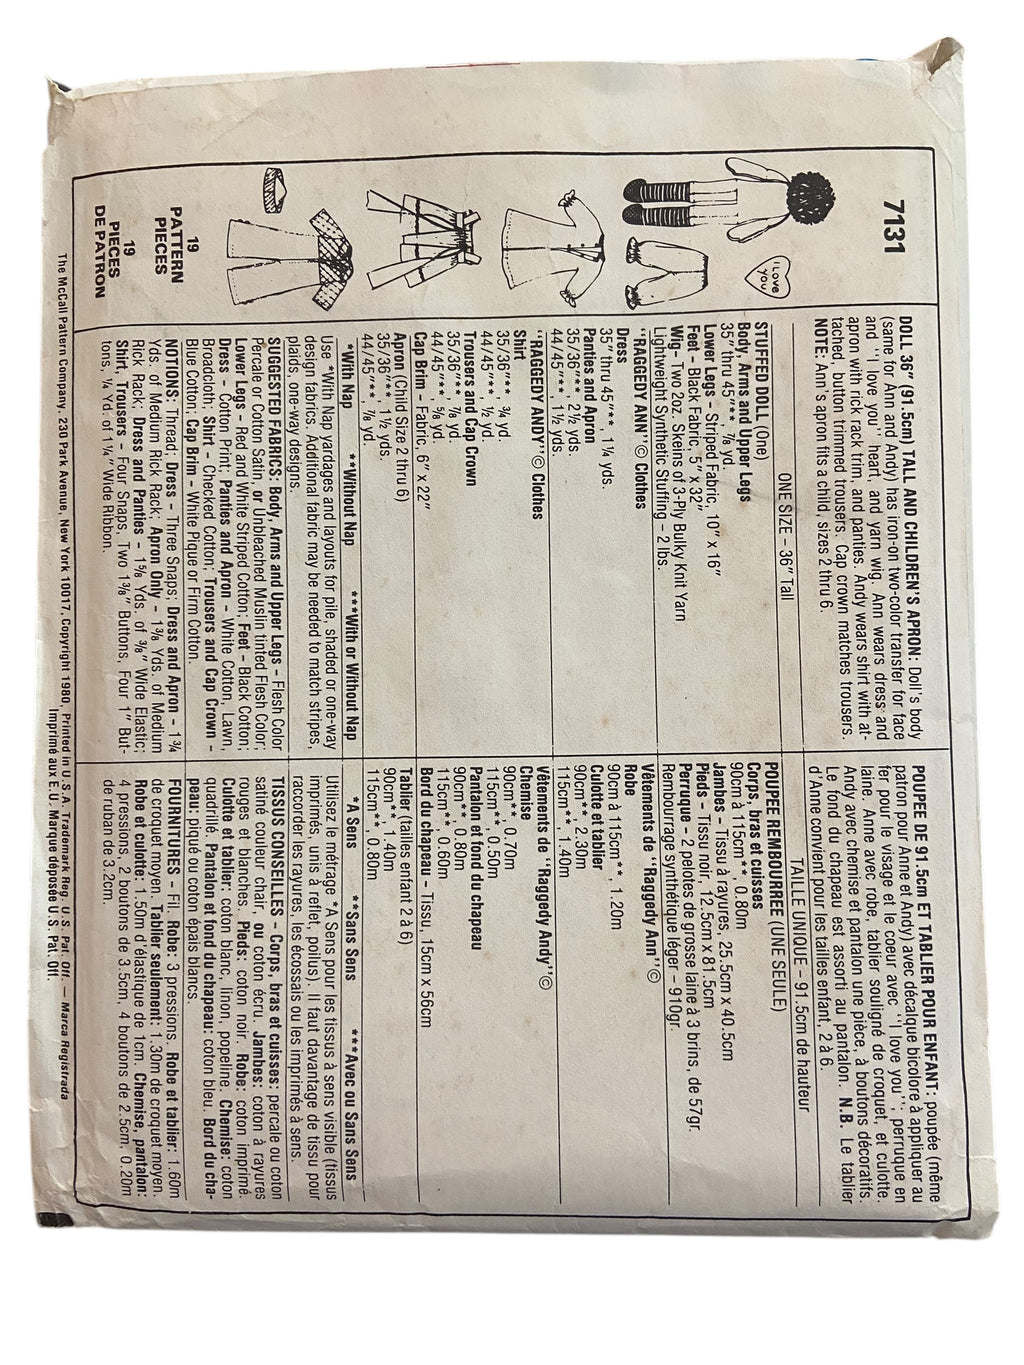 7131
I LOVE
YOU
19
PATTERN
PIECES
19
PIECES
DE PATRON
DOLL 36" (91.5cm) TALL AND CHILDREN'S APRON: Doll's body
(same for Ann and Andy) has iron-on two-color transfer for face
and "I love you" heart, and yarn wig. Ann wears dress and
apron with rick rack trim, and panties. Andy wears shirt with at-
tached, button trimmed trousers. Cap crown matches trousers.
NOTE: Ann's apron fits a child, sizes 2 thru 6.
ONE SIZE – 36" Tall
STUFFED DOLL (One)
Body, Arms and Upper Legs
35" thru 45"**, ⅞ yd.
Lower Legs – Striped Fabric, 10" x 16"
Feet – Black Fabric, 5" x 32"
Wig – Two 2oz. Skeins of 3-Ply Bulky Knit Yarn
Lightweight Synthetic Stuffing – 2 lbs.
"RAGGEDY ANN"© Clothes
Dress
35" thru 45"**, 1¼ yds.
Panties and Apron
35/36"**, 2½ yds.
44/45"**, 1½ yds.
"RAGGEDY ANDY"© Clothes
Shirt
35/36"**, ¾ yd.
44/45"**, ½ yd.
Trousers and Cap Crown
35/36"**, ⅞ yd.
44/45"**, ⅝ yd.
Cap Brim – Fabric, 6" x 22"
Apron (Child Size 2 thru 6)
35/36"**, 1½ yds.
44/45"**, ⅞ yd.
*With Nap **Without Nap ***With or Without Nap
Use *With Nap yardages and layouts for pile, shaded or one-way
design fabrics. Additional fabric may be needed to match stripes,
plaids, one-way designs.
SUGGESTED FABRICS: Body, Arms and Upper Legs – Flesh Color
Percale or Cotton Satin, or Unbleached Muslin tinted Flesh Color;
Lower Legs – Red and White Striped Cotton; Feet – Black Cotton;
Dress – Cotton Print; Panties and Apron – White Cotton, Lawn,
Broadcloth; Shirt – Checked Cotton; Trousers and Cap Crown –
Blue Cotton; Cap Brim – White Pique or Firm Cotton.
NOTIONS: Thread; Dress – Three Snaps; Dress and Apron – 1¾
Yds. of Medium Rick Rack; Apron Only – 1⅜ Yds. of Medium
Rick Rack; Dress and Panties – 1⅝ Yds. of ⅜" Wide Elastic;
Shirt, Trousers – Four Snaps, Two 1⅜" Buttons, Four 1" But-
tons, ¼ Yd. of 1¼" Wide Ribbon.
POUPEE DE 91.5cm ET TABLIER POUR ENFANT: poupée (même
patron pour Anne et Andy) avec décalque bicolore à appliquer au
fer pour le visage et le coeur avec "I love you"; perruque en
laine. Anne avec robe, tablier souligné de croquet, et culotte.
Andy avec chemise et pantalon une pièce, à boutons décoratifs.
Le fond du chapeau est assorti au pantalon. N.B. Le tablier
d'Anne convient pour les tailles enfant, 2 à 6.
TAILLE UNIQUE – 91.5cm de hauteur
POUPEE REMBOURREE (UNE SEULE)
Corps, bras et cuisses
90cm à 115cm**, 0.80m
Jambes – Tissu à rayures, 25.5cm x 40.5cm
Pieds – Tissu noir, 12.5cm x 81.5cm
Perruque – 2 pelotes de grosse laine à 3 brins, de 57gr.
Rembourrage synthétique léger – 910gr.
Vêtements de "Raggedy Ann"©
Robe
90cm à 115cm**, 1.20m
Culotte et tablier
90cm**, 2.30m
115cm**, 1.40m
Vêtements de "Raggedy Andy"©
Chemise
90cm**, 0.70m
115cm**, 0.50m
Pantalon et fond du chapeau
90cm**, 0.80m
115cm**, 0.60m
Bord du chapeau – Tissu, 15cm x 56cm
Tablier (tailles enfant 2 à 6)
90cm**, 1.40m
115cm**, 0.80m
*A Sens **Sans Sens ***Avec ou Sans Sens
Utilisez le métrage *A Sens pour les tissus à sens visible (tissus
imprimés, unis à reflet, poilus). Il faut davantage de tissu pour
raccorder les rayures, les écossais ou les imprimés à sens.
TISSUS CONSEILLES – Corps, bras et cuisses: percale ou coton
satiné couleur chair, ou coton écru. Jambes: coton à rayures
rouges et blanches. Pieds: coton noir. Robe: coton imprimé.
Culotte et tablier: coton blanc, linon, popeline. Chemise: coton
quadrillé. Pantalon et fond du chapeau: coton bleu. Bord du cha-
peau: piqué ou coton épais blancs.
FOURNITURES – Fil. Robe: 3 pressions. Robe et tablier: 1.60m
de croquet moyen. Tablier seulement: 1.30m de croquet moyen.
Robe et culotte: 1.50m d'élastique de 1cm. Chemise, pantalon:
4 pressions, 2 boutons de 3.5cm, 4 boutons de 2.5cm, 0.20m
de ruban de 3.2cm.
The McCall Pattern Company, 230 Park Avenue, New York 10017, Copyright 1980, Printed in U.S.A. Trademark Reg. U.S. Pat. Off. — Marca Registrada
Imprimé aux E.U. Marque déposée U.S. Pat. Off.